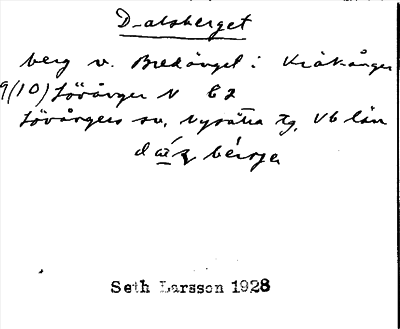 D-alsberget
berg v. Bredångel i Kråkånger
9(10) Lövånger N C2
Lövångers sn, Nysätra tg, Vb län
bérsje
Seth Larsson 1928